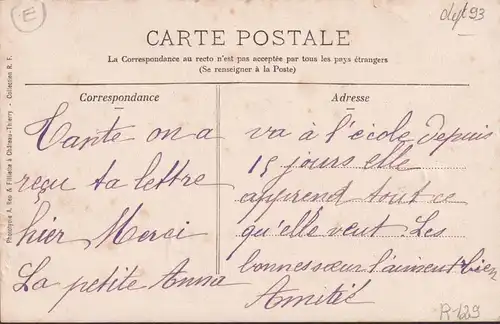 E
dept 93
CARTE POSTALE
La Correspondance au recto n'est pas acceptée par tous les pays étrangers
(Se renseigner à la Poste)
Correspondance
Tante on a
reçu ta lettre
hier Merci
La petite Anna
Adresse
va à l'école depuis
15 jours elle
apprend tout ce
qu'elle veut. Les
bonnes sœur l'aiment bien
Amitié
R-129
Phototypie A. Rep & Filliette à Château-Thierry - Collection R. F.